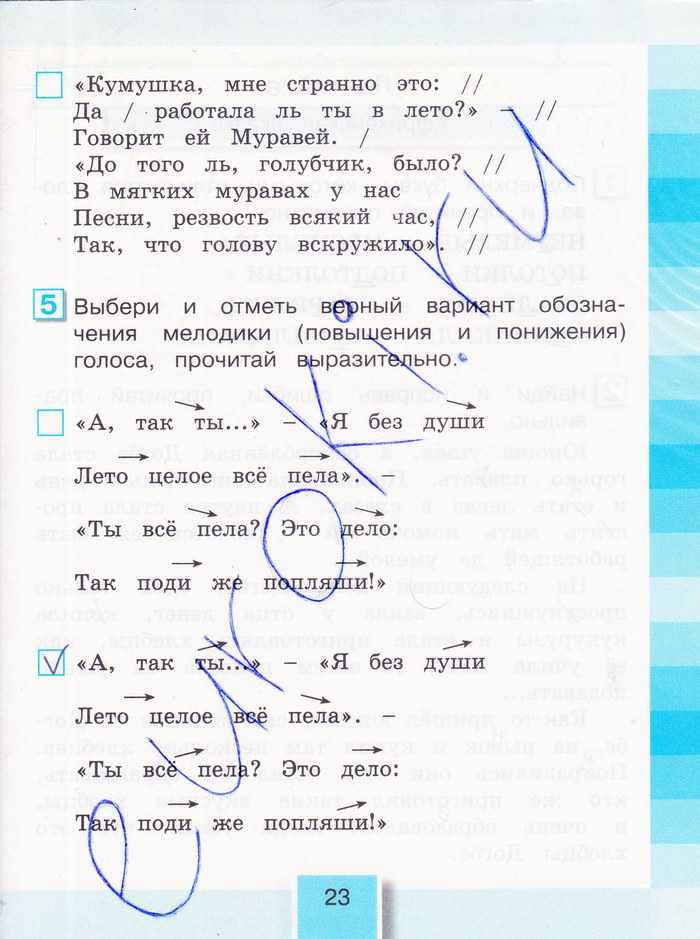 «Кумушка, мне странно это: //
Да / работала ль ты в лето?» – //
Говорит ей Муравей. /
«До того ль, голубчик, было? //
В мягких муравах у нас –
Песни, резвость всякий час, //
Так, что голову вскружило». //
5 Выбери и отметь верный вариант обозна-
чения мелодики (повышения и понижения)
голоса, прочитай выразительно.
«А, так ты...» – «Я без души
Лето целое всё пела». –
«Ты всё пела? Это дело:
Так поди же попляши!»
V «А, так ты...» – «Я без души
Лето целое всё пела». –
«Ты всё пела? Это дело:
Так поди же попляши!»
23